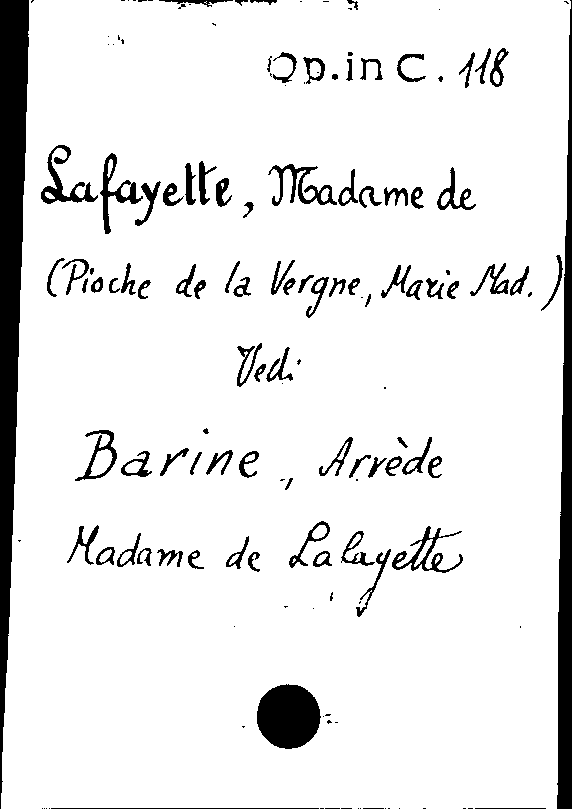 Op. in C. 118
Lafayette, Madame de
(Pioche de la Vergne, Marie Mad.)
Vedi
Barine, Arrède
Madame de Lafayette